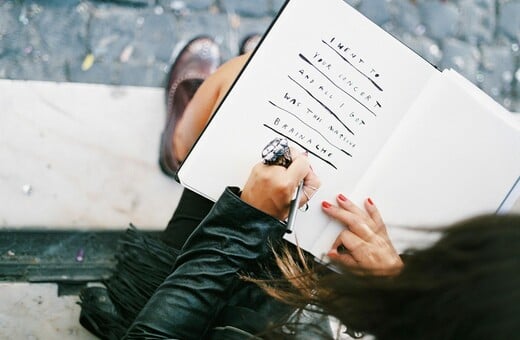 I WENT TO
YOUR CONCERT
AND ALL I GOT
WAS THIS MASSIVE
BRAINACHE